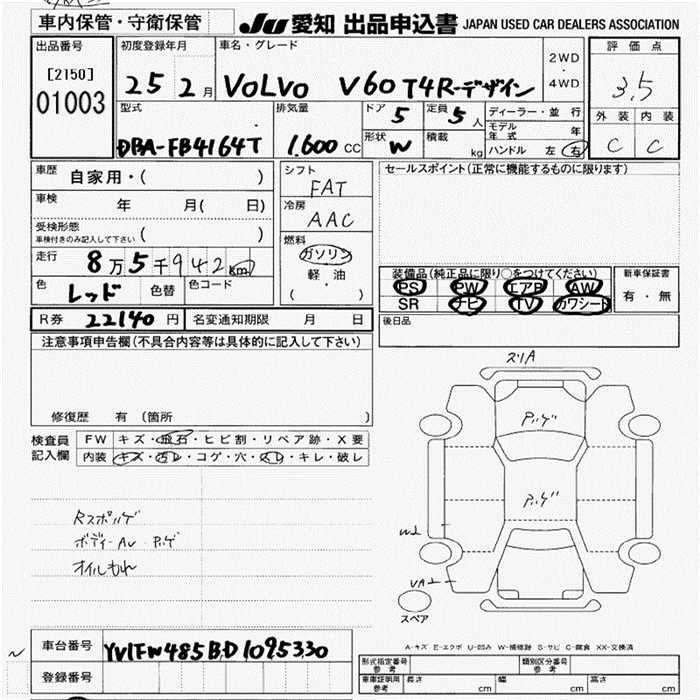 車内保管・守衛保管
JU 愛知 出品申込書 JAPAN USED CAR DEALERS ASSOCIATION
出品番号
[2150]
01003
初度登録年月
25 2月
車名・グレード
VOLVO V60 T4R-デザイン
2WD
・
4WD
評価点
3.5
型式
DBA-FB4164T
排気量
1.600 CC
ドア 5
定員 5人
形状 W
積載 kg
ディーラー・並行
モデル年式 年
ハンドル 左 右
外装 内装
C C
車歴 自家用・( )
車検 年 月( 日)
受検形態
車検付きのみ記入して下さい ( )
走行 8万5千942km
色 レッド 色替 色コード
シフト
FAT
冷房
AAC
燃料
ガソリン
軽・油
( )
セールスポイント(正常に機能するものに限ります)
装備品(純正品に限り○をつけてください)
PS PW エアB AW
SR ナビ TV カワシート
新車保証書
有・無
R券 22140円 名変通知期限 月 日
後日品
注意事項申告欄(不具合内容等は具体的に記入して下さい)
修復歴 有 (箇所
検査員
記入欄
FW キズ・飛石・ヒビ割・リペア跡・X要
内装 キズ・汚レ・コゲ・穴・スレ・キレ・破レ
Rスポルゲ
オイルもれ
スリA
W⊥
スペア
A-キズ E-エクボ U-凹み W-補修跡 S-サビ C-腐食 XX-交換済
車台番号 YV1FW485BD1095330
登録番号
形式指定番号
参考
類別区分番号
参考
車庫証明用
参考
長さ cm 幅 cm 高さ cm